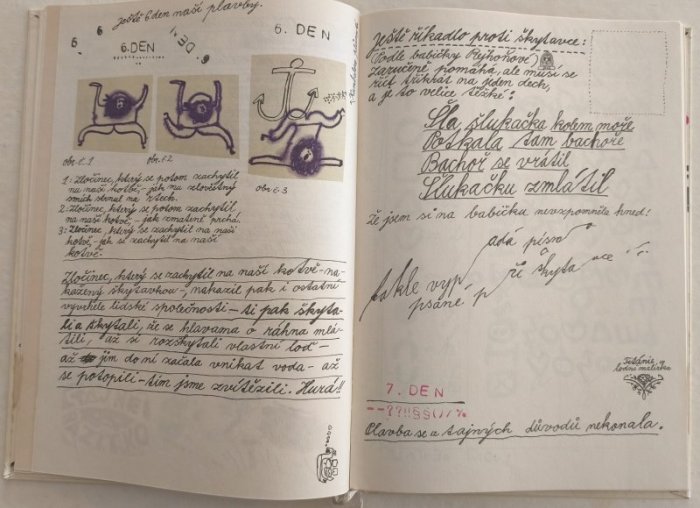 Ještě 6 den naší plavby.
6 6 6. DEN DEN 6
6. DEN
obr. č. 1 obr. č. 2
obr. č. 3
1: Zločinec, který se potom zachytil
na naší kotvě - jak mu zlověstný
smích ztrnul na rtech.
2: Zločinec, který se potom zachytil
na naší kotvě, - jak zmateně prchá.
3: Zločinec, který se zachytil na naší
kotvě, - jak se zachytil na naší
kotvě.
Zločinec, který se zachytil na naší kotvě - na-
kažený škytavkou -, nakazil pak i ostatní
vyvrhele lidské společnosti - ti pak škyta-
li a škytali, že se hlavama o ráhna mlá-
tili, až si rozškytali vlastní loď -
až jim do ní začala vnikat voda - až
se potopili - tím jsme zvítězili. Hurá!!
Ještě říkadlo proti škytavce:
(Podle babičky Rejhoňové)
zaručeně pomáhá, ale musí se
říct třikrát na jeden dech,
a je to velice těžké:
Šla šlukačka kolem moře
Potkala tam bachoře
Bachoř se vrátil
Šlukačku zmlátil
Že jsem si na babičku nevzpomněla hned!
takle vyp adá písmo
psané p ři škyta vce
Titánie,
lodní malířka
7. DEN
--??!!§§()/%
Plavba se z tajných důvodů nekonala.